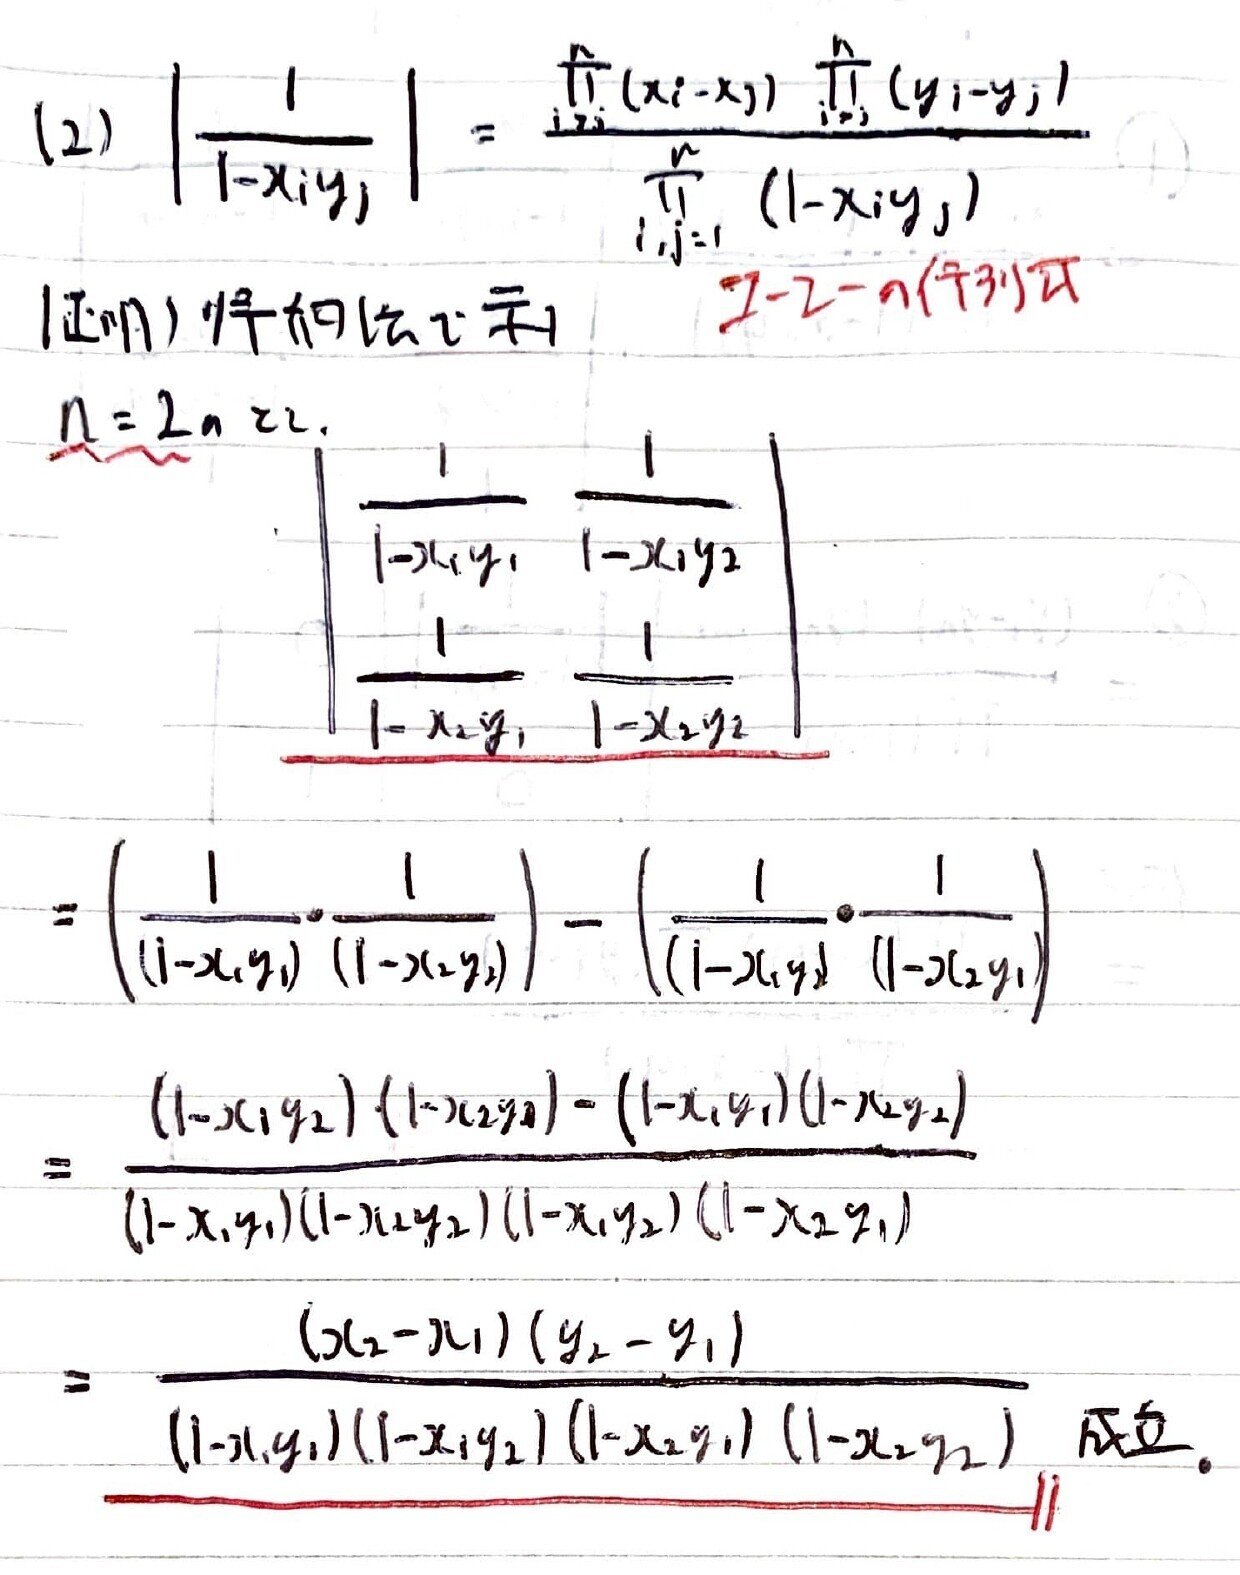 (2) | 1/(1-xᵢyⱼ) | = ∏ⁿ_{i>j}(xᵢ-xⱼ) ∏ⁿ_{i>j}(yᵢ-yⱼ) / ∏ⁿ_{i,j=1}(1-xᵢyⱼ)
コーシーの行列式
(証明) 帰納法で示す
n=2のとき.
| 1/(1-x₁y₁) 1/(1-x₁y₂) |
| 1/(1-x₂y₁) 1/(1-x₂y₂) |
= ( 1/(1-x₁y₁) • 1/(1-x₂y₂) ) - ( 1/((1-x₁y₂) • 1/(1-x₂y₁) )
= (1-x₁y₂)·(1-x₂y₁)-(1-x₁y₁)(1-x₂y₂) / (1-x₁y₁)(1-x₂y₂)(1-x₁y₂)(1-x₂y₁)
= (x₂-x₁)(y₂-y₁) / (1-x₁y₁)(1-x₁y₂)(1-x₂y₁)(1-x₂y₂) 成立.